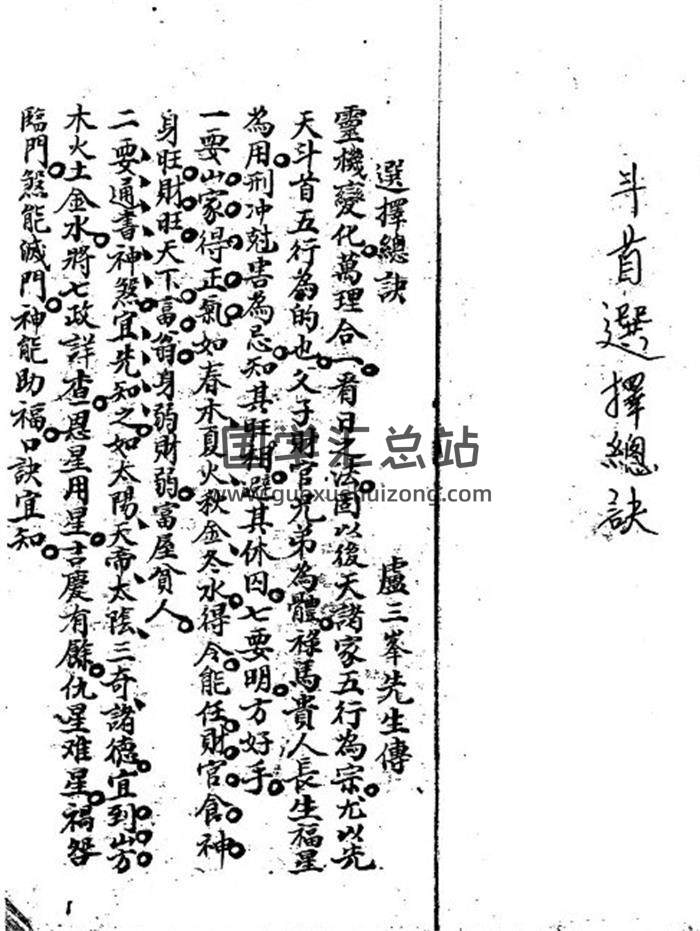 斗首選擇總訣
選擇總訣　盧三峯先生傳
靈機變化。萬理合一。看日之法。固以後天諸家五行為宗。尤以先
天斗首五行為的也。父子財官兄弟為體。祿馬貴人長生福星
為用。刑冲尅害為忌。知其旺相。避其休囚。七要明。方好手。
一要山家得正氣。如春木夏火秋金冬水得令。能任財官食神。
身旺財旺天下富翁。身弱財弱富屋貧人。
二要通書神煞宜先知之。如太陽、天帝、太陰、三奇、諸德。宜到山方。
木火土金水。將七政詳查。恩星用星。吉慶有餘。仇星难星。禍咎
臨門。煞能滅門。神能助福。口訣宜知。
国学汇总站
www.guoxuehuizong.com
1